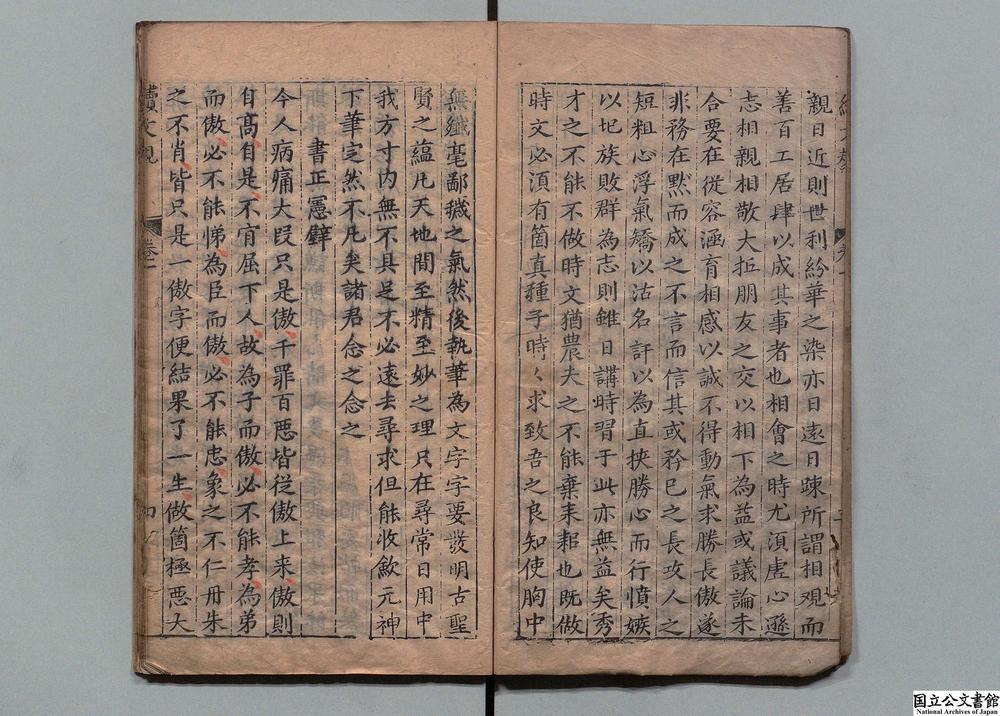 親日近則世利紛華之染亦日遠日踈所謂相觀而
善百工居肆以成其事者也相會之時尤須虛心遜
志相親相敬大抵朋友之交以相下為益或議論未
合要在從容涵育相感以誠不得動氣求勝長傲遂
非務在默而成之不言而信其或矜已之長攻人之
短粗心浮氣矯以沽名訐以為直挾勝心而行憤嫉
以圮族敗群為志則雖日講時習于此亦無益矣秀
才之不能不做時文猶農夫之不能棄耒耜也既做
時文必湏有箇真種子時々求致吾之良知使胸中
無纖毫鄙穢之氣然後執筆為文字字要發明古聖
賢之蘊凡天地間至精至妙之理只在尋常日用中
我方寸內無不具足不必遠去尋求但能收歛元神
下筆定然不凡矣諸君念之念之
書正憲壁
今人病痛大叚只是傲千罪百惡皆從傲上來傲則
自高自是不肯屈下人故為子而傲必不能孝為弟
而傲必不能悌為臣而傲必不能忠象之不仁丹朱
之不肖皆只是一傲字便結果了一生做箇極惡大
卷一
国立公文書館
National Archives of Japan